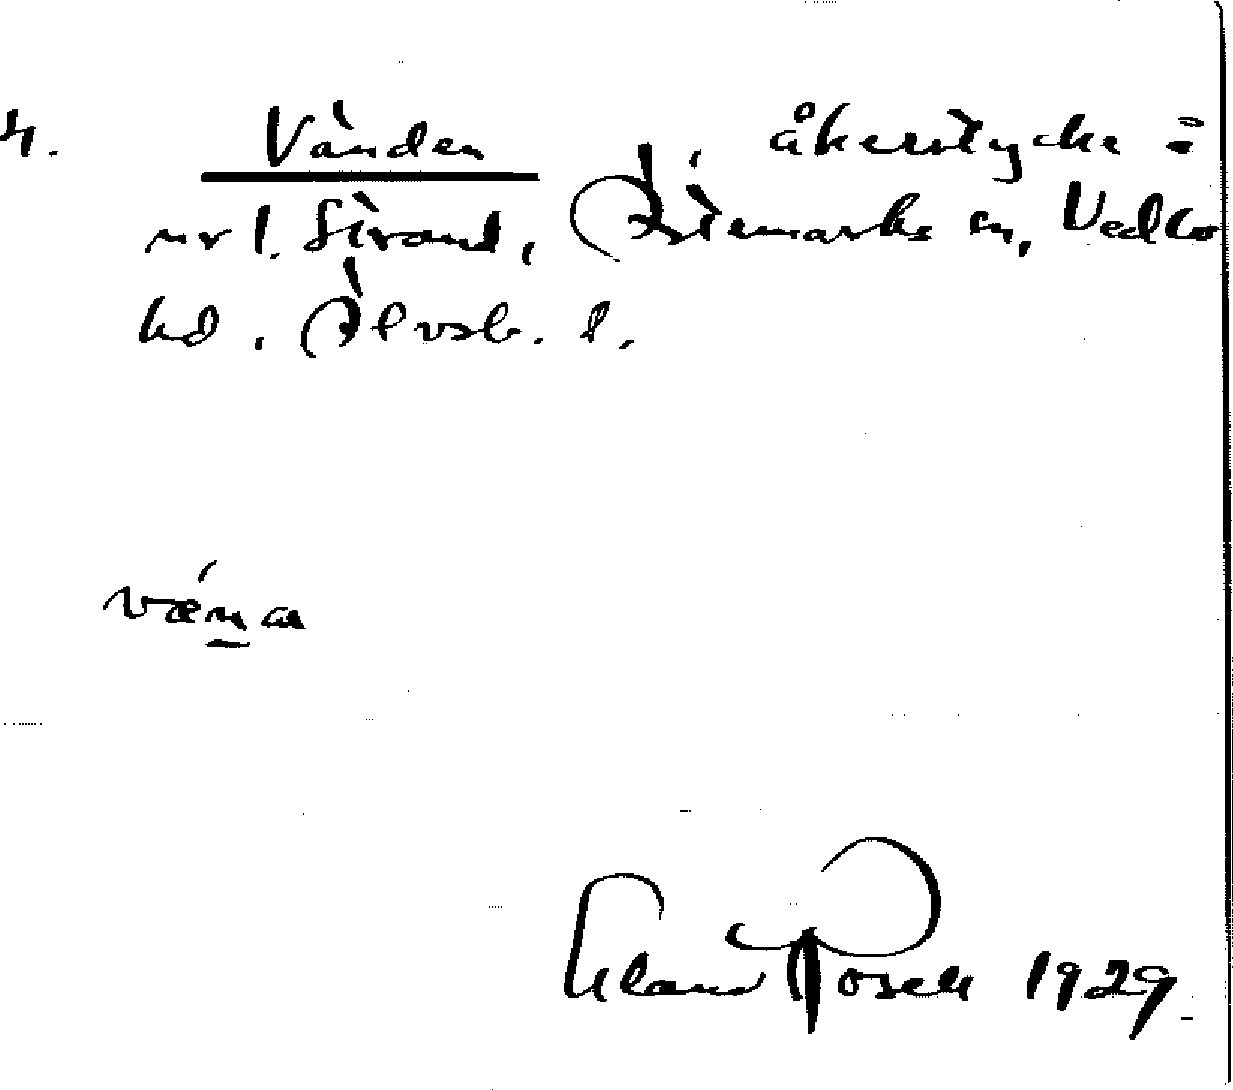 4. Vänden, åkerstycke i
nr 1. Strand, Ärtemarks sn, Vedbo
hd. Älvsb. l.
vǽna
Claes Rosell 1929